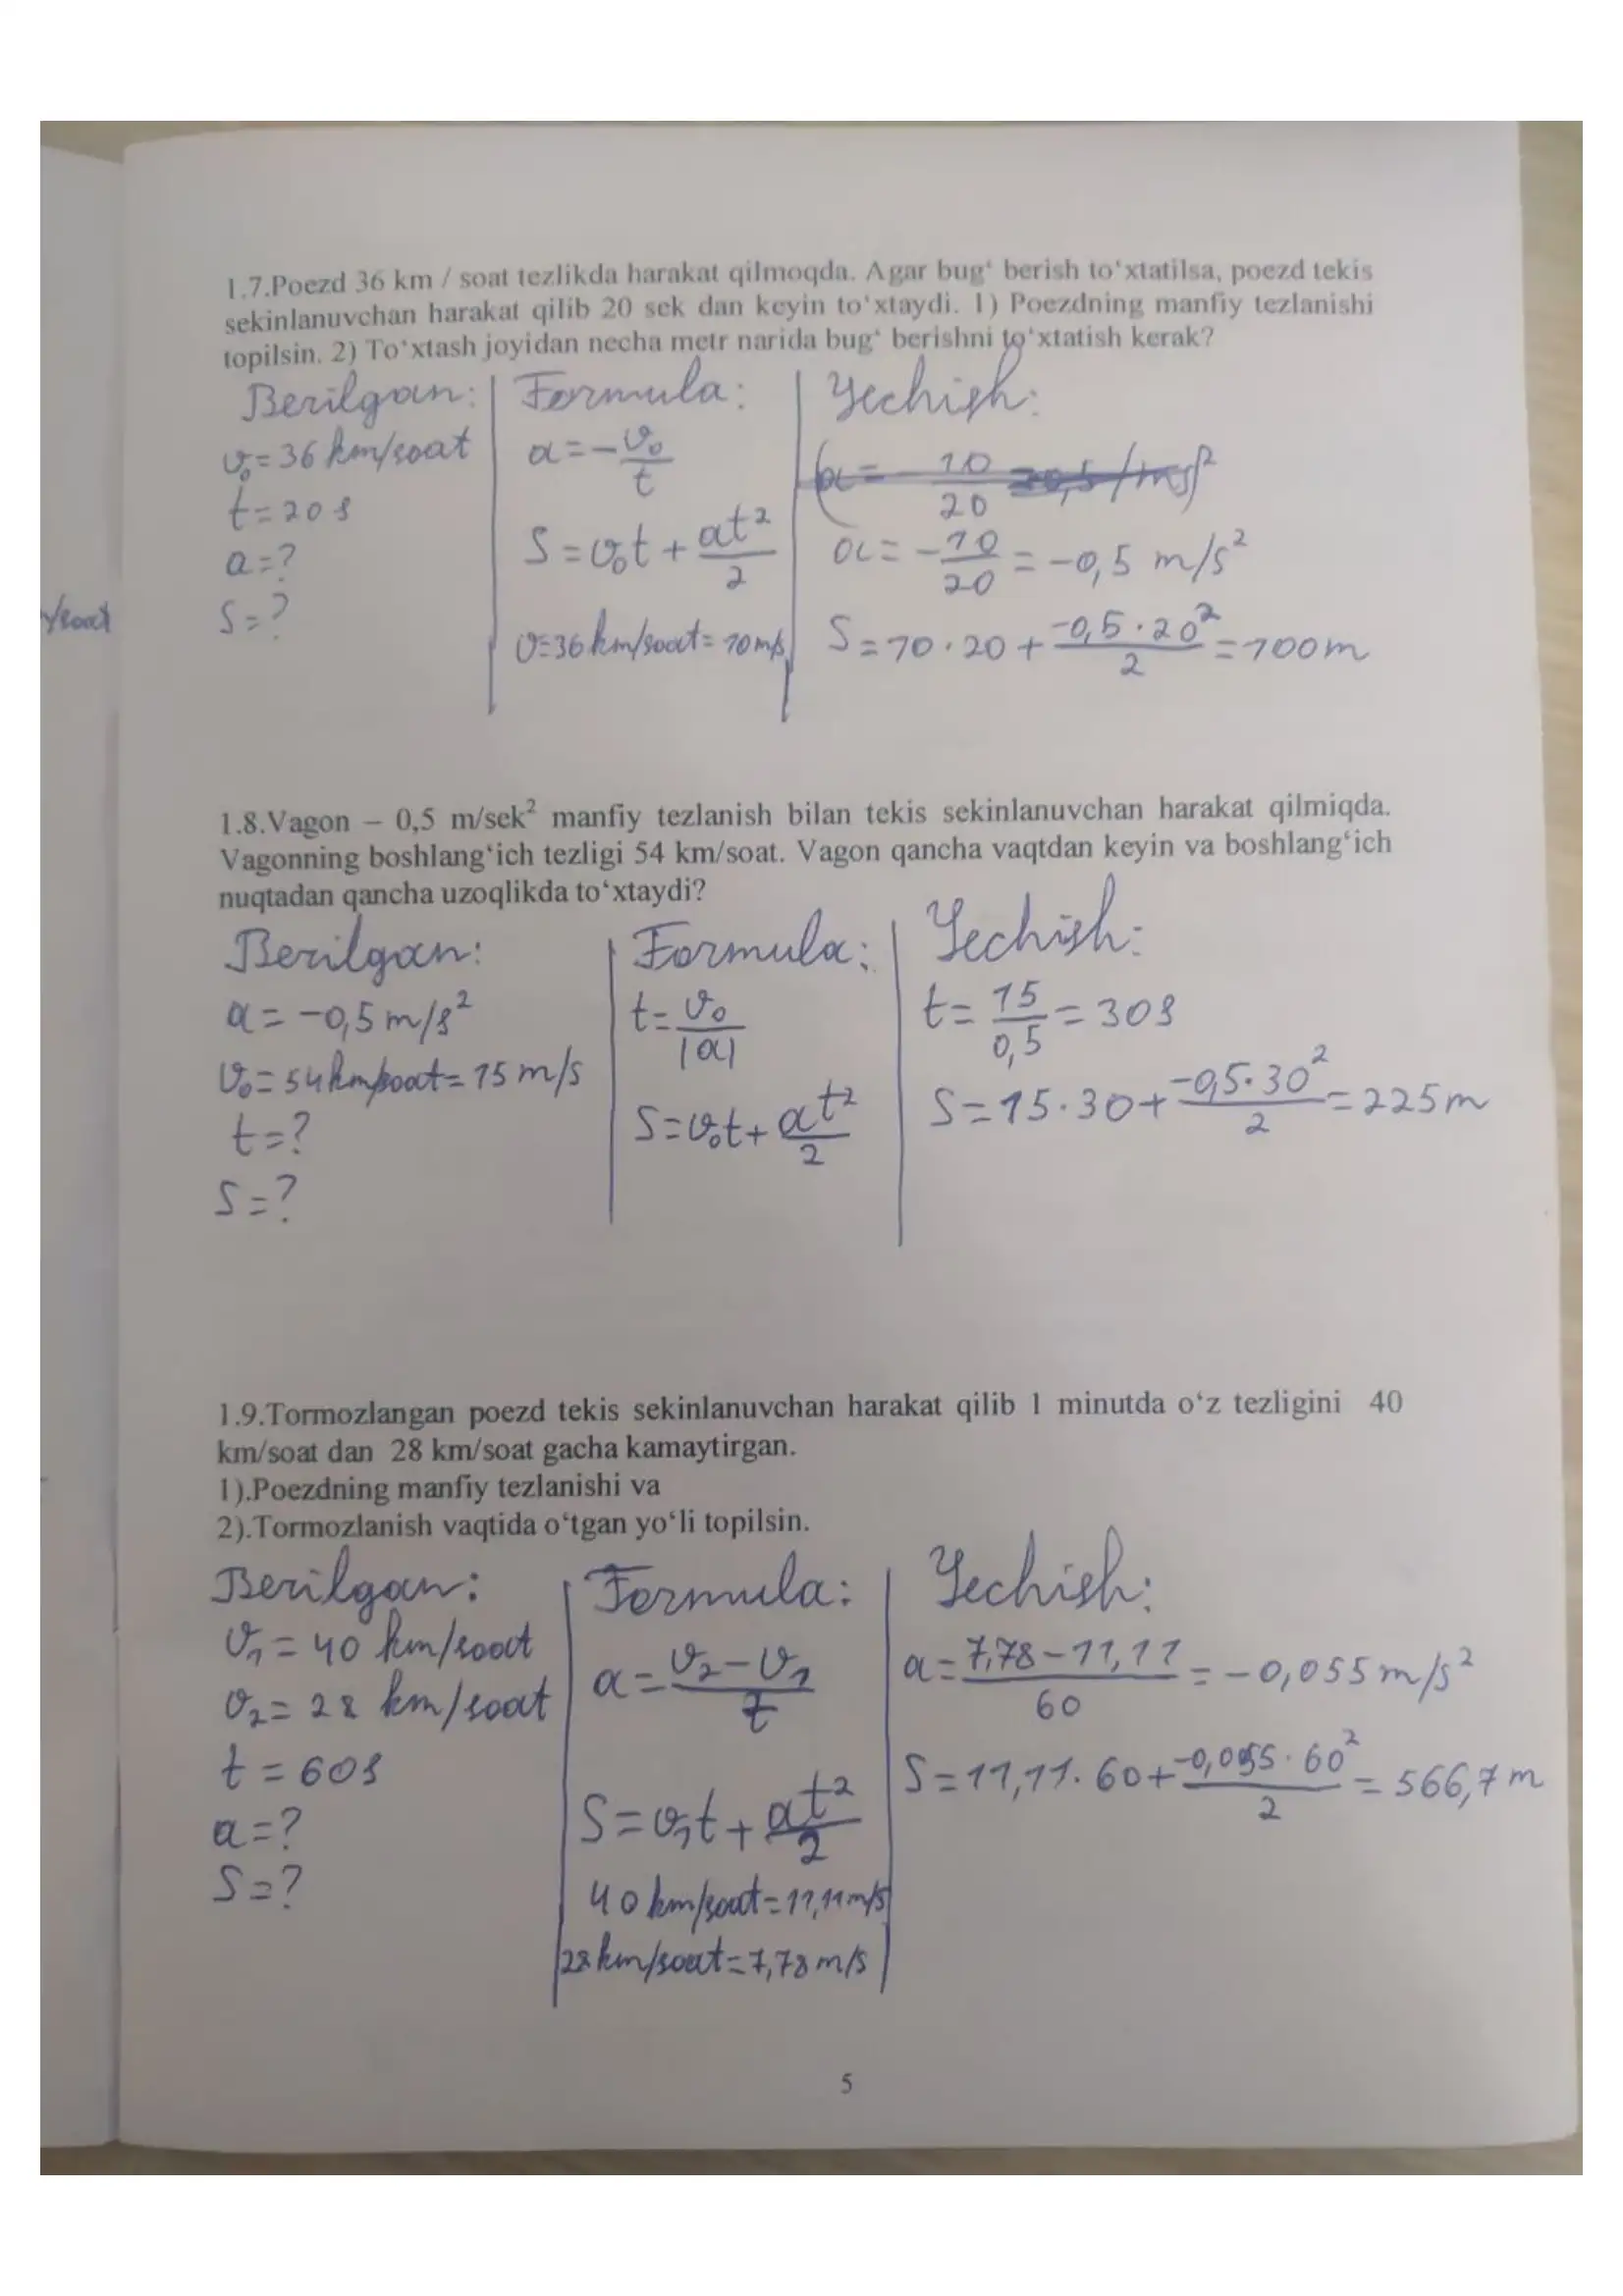 1.7.Poezd 36 km / soat tezlikda harakat qilmoqda. Agar bug‘ berish to‘xtatilsa, poezd tekis
sekinlanuvchan harakat qilib 20 sek dan keyin to‘xtaydi. 1) Poezdning manfiy tezlanishi
topilsin. 2) To‘xtash joyidan necha metr narida bug‘ berishni to‘xtatish kerak?
Berilgan:
v₀=36 km/soat
t=20 s
a=?
S=?
Formula:
a=-v₀/t
S=v₀t+at²/2
v=36 km/soat=10 m/s
Yechish:
a=-10/20=-0,5 m/s²
S=10·20+-0,5·20²/2=100m
/soat
1.8.Vagon – 0,5 m/sek² manfiy tezlanish bilan tekis sekinlanuvchan harakat qilmiqda.
Vagonning boshlang‘ich tezligi 54 km/soat. Vagon qancha vaqtdan keyin va boshlang‘ich
nuqtadan qancha uzoqlikda to‘xtaydi?
Berilgan:
a=-0,5 m/s²
v₀=54 km/soat=15 m/s
t=?
S=?
Formula:
t=v₀/|a|
S=v₀t+at²/2
Yechish:
t=15/0,5=30s
S=15·30+-0,5·30²/2=225m
1.9.Tormozlangan poezd tekis sekinlanuvchan harakat qilib 1 minutda o‘z tezligini 40
km/soat dan 28 km/soat gacha kamaytirgan.
1).Poezdning manfiy tezlanishi va
2).Tormozlanish vaqtida o‘tgan yo‘li topilsin.
Berilgan:
v₁=40 km/soat
v₂=28 km/soat
t=60s
a=?
S=?
Formula:
a=v₂-v₁/t
S=v₁t+at²/2
40 km/soat=11,11 m/s
28 km/soat=7,78 m/s
Yechish:
a=7,78-11,11/60=-0,055 m/s²
S=11,11·60+-0,055·60²/2=566,7 m
5